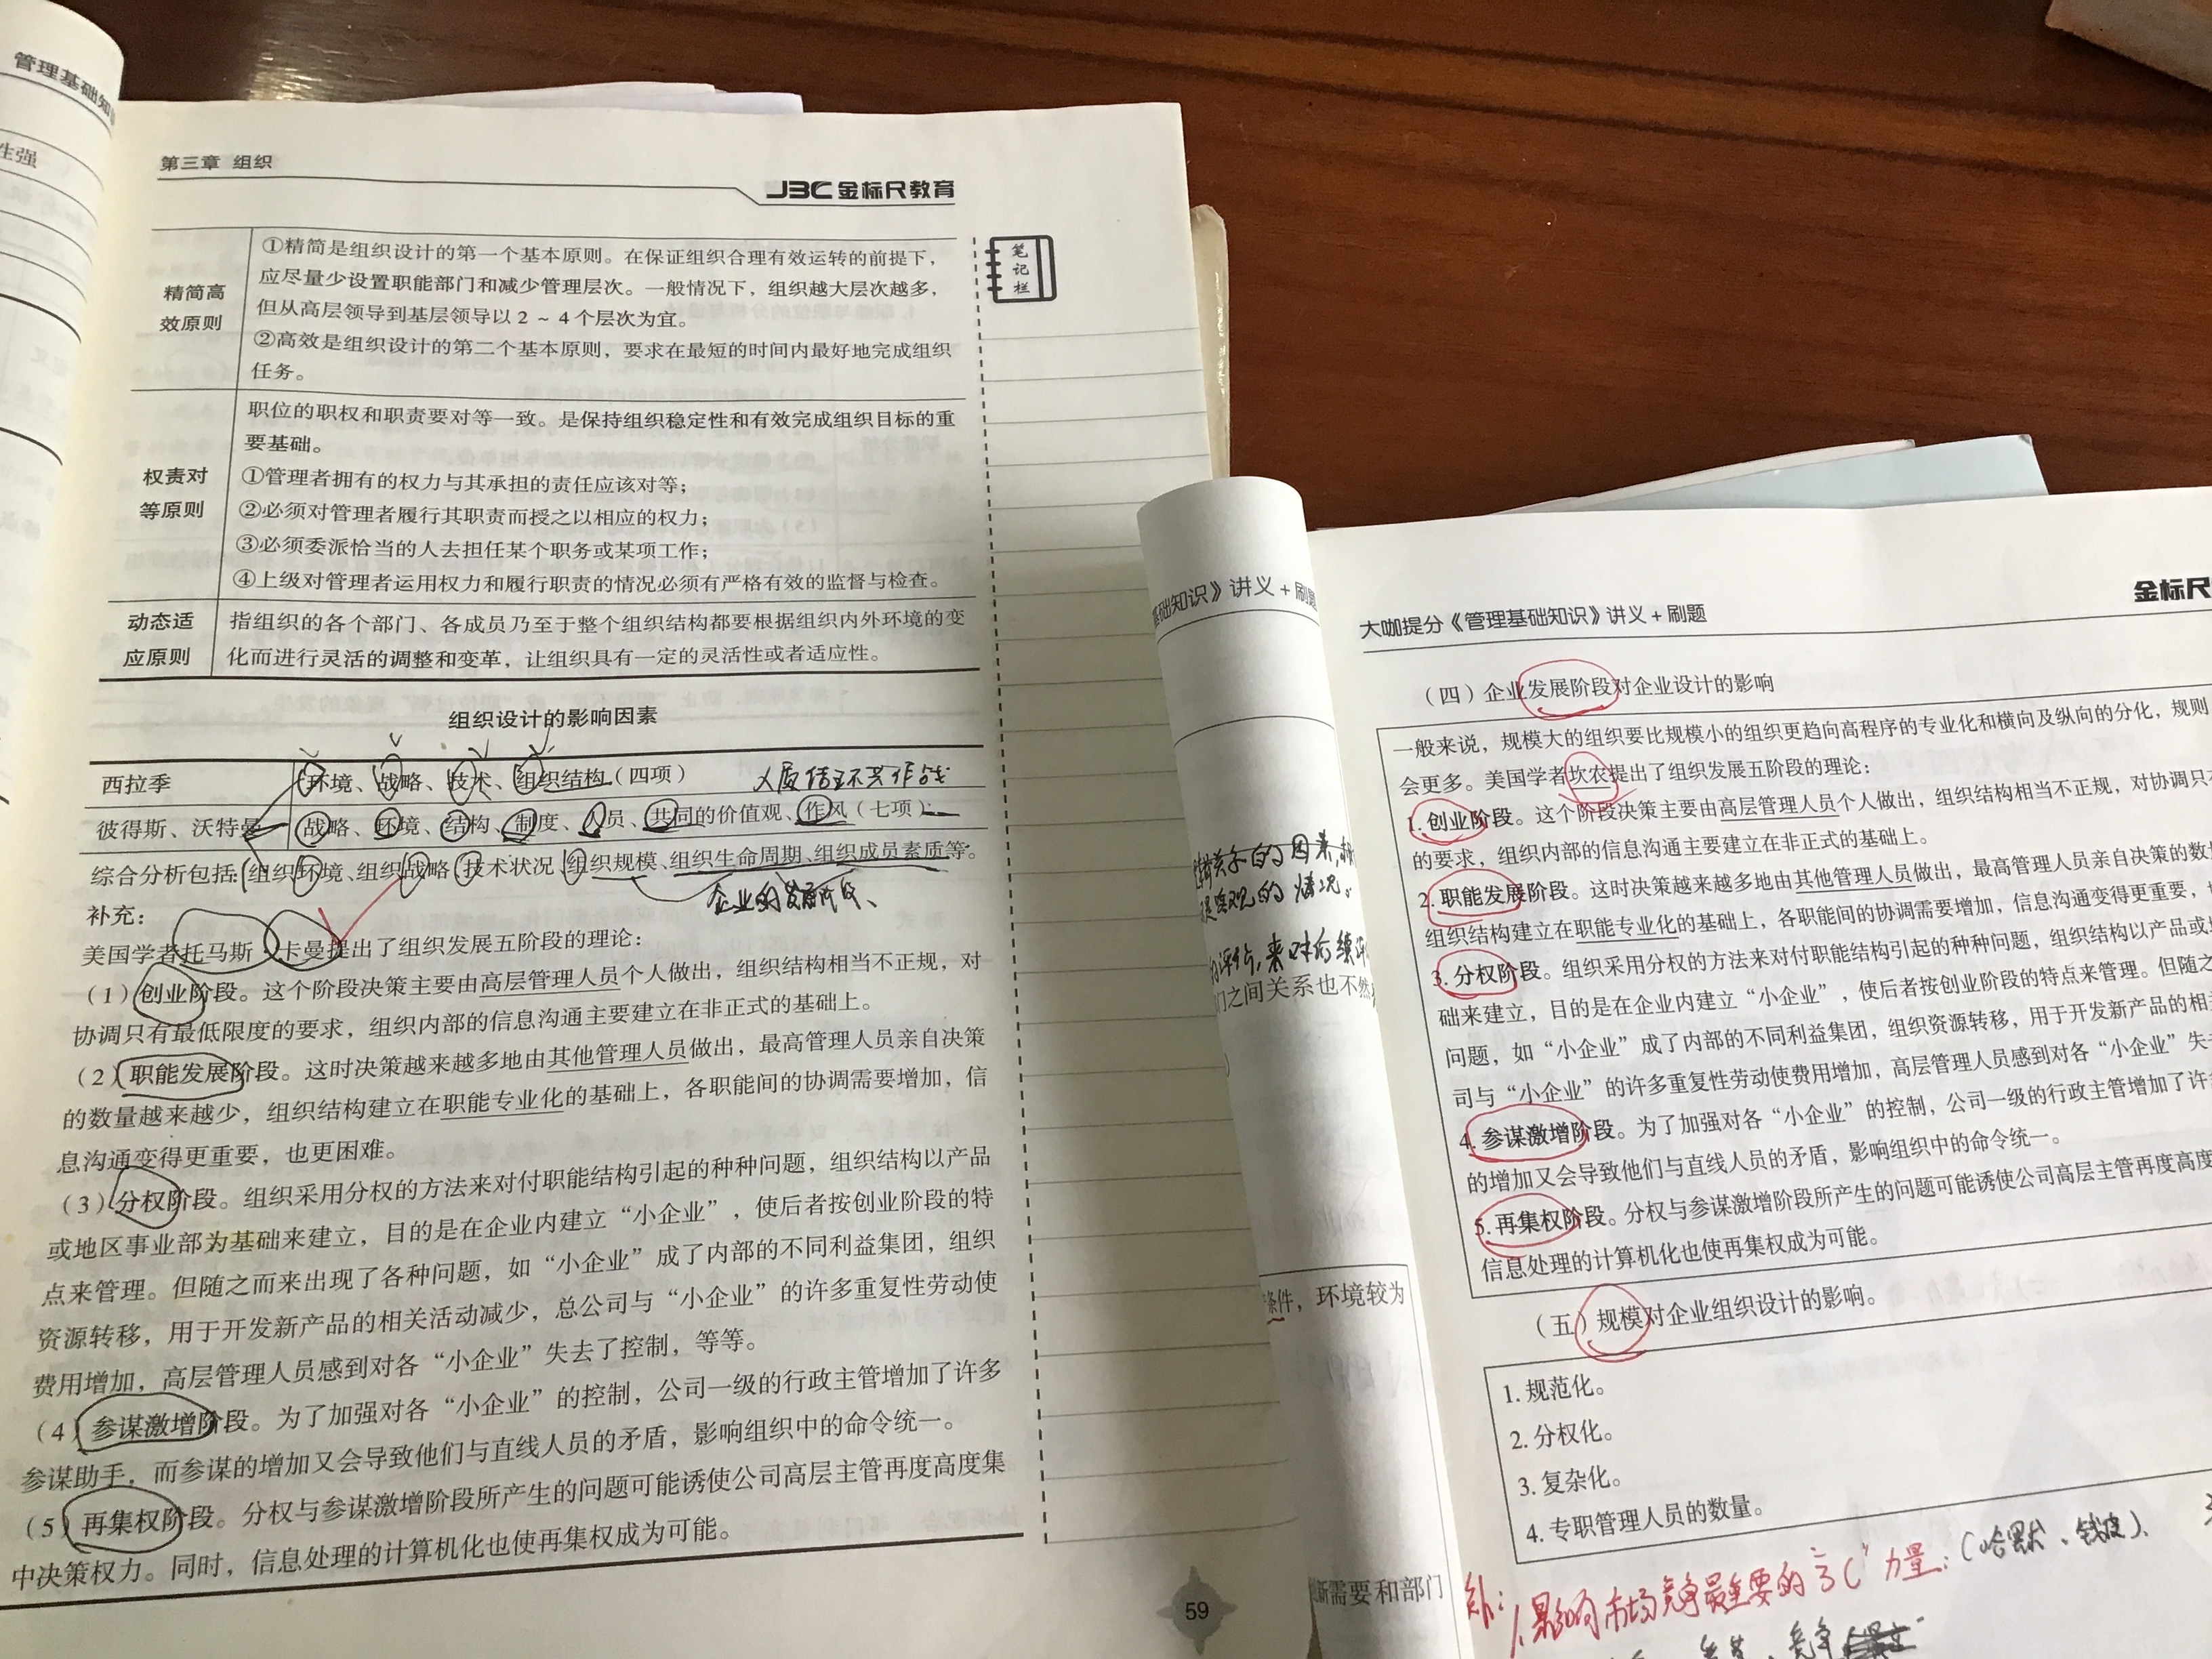 管理基础知
性强
第三章 组织
JBC 金标尺教育
笔记栏
精简高效原则
①精简是组织设计的第一个基本原则。在保证组织合理有效运转的前提下，
应尽量少设置职能部门和减少管理层次。一般情况下，组织越大层次越多，
但从高层领导到基层领导以 2 ~ 4 个层次为宜。
②高效是组织设计的第二个基本原则，要求在最短的时间内最好地完成组织
任务。
权责对等原则
职位的职权和职责要对等一致。是保持组织稳定性和有效完成组织目标的重
要基础。
①管理者拥有的权力与其承担的责任应该对等；
②必须对管理者履行其职责而授之以相应的权力；
③必须委派恰当的人去担任某个职务或某项工作；
④上级对管理者运用权力和履行职责的情况必须有严格有效的监督与检查。
动态适应原则
指组织的各个部门、各成员乃至于整个组织结构都要根据组织内外环境的变
化而进行灵活的调整和变革，让组织具有一定的灵活性或者适应性。
组织设计的影响因素
西拉季 环境、战略、技术、组织结构（四项）
彼得斯、沃特曼 战略、环境、结构、制度、人员、共同的价值观、作风（七项）
综合分析包括：组织环境、组织战略、技术状况、组织规模、组织生命周期、组织成员素质等。
企业的发展阶段、
补充：
美国学者托马斯·卡曼提出了组织发展五阶段的理论：
（1）创业阶段。这个阶段决策主要由高层管理人员个人做出，组织结构相当不正规，对
协调只有最低限度的要求，组织内部的信息沟通主要建立在非正式的基础上。
（2）职能发展阶段。这时决策越来越多地由其他管理人员做出，最高管理人员亲自决策
的数量越来越少，组织结构建立在职能专业化的基础上，各职能间的协调需要增加，信
息沟通变得更重要，也更困难。
（3）分权阶段。组织采用分权的方法来对付职能结构引起的种种问题，组织结构以产品
或地区事业部为基础来建立，目的是在企业内建立“小企业”，使后者按创业阶段的特
点来管理。但随之而来出现了各种问题，如“小企业”成了内部的不同利益集团，组织
资源转移，用于开发新产品的相关活动减少，总公司与“小企业”的许多重复性劳动使
费用增加，高层管理人员感到对各“小企业”失去了控制，等等。
（4）参谋激增阶段。为了加强对各“小企业”的控制，公司一级的行政主管增加了许多
参谋助手，而参谋的增加又会导致他们与直线人员的矛盾，影响组织中的命令统一。
（5）再集权阶段。分权与参谋激增阶段所产生的问题可能诱使公司高层主管再度高度集
中决策权力。同时，信息处理的计算机化也使再集权成为可能。
59
基础知识》讲义 + 刷题
门之间关系也不然
条件，环境较为
新需要和部门
金标尺
大咖提分《管理基础知识》讲义 + 刷题
（四）企业发展阶段对企业设计的影响
一般来说，规模大的组织要比规模小的组织更趋向高程序的专业化和横向及纵向的分化，规则
会更多。美国学者坎农提出了组织发展五阶段的理论：
1. 创业阶段。这个阶段决策主要由高层管理人员个人做出，组织结构相当不正规，对协调只有
的要求，组织内部的信息沟通主要建立在非正式的基础上。
2. 职能发展阶段。这时决策越来越多地由其他管理人员做出，最高管理人员亲自决策的数
组织结构建立在职能专业化的基础上，各职能间的协调需要增加，信息沟通变得更重要，
3. 分权阶段。组织采用分权的方法来对付职能结构引起的种种问题，组织结构以产品或
础来建立，目的是在企业内建立“小企业”，使后者按创业阶段的特点来管理。但随之
问题，如“小企业”成了内部的不同利益集团，组织资源转移，用于开发新产品的相
司与“小企业”的许多重复性劳动使费用增加，高层管理人员感到对各“小企业”失
4. 参谋激增阶段。为了加强对各“小企业”的控制，公司一级的行政主管增加了许
的增加又会导致他们与直线人员的矛盾，影响组织中的命令统一。
5. 再集权阶段。分权与参谋激增阶段所产生的问题可能诱使公司高层主管再度高度
信息处理的计算机化也使再集权成为可能。
（五）规模对企业组织设计的影响。
1. 规范化。
2. 分权化。
3. 复杂化。
4. 专职管理人员的数量。
补：1. 影响市场竞争最重要的“3C”力量：（哈默、钱皮）、